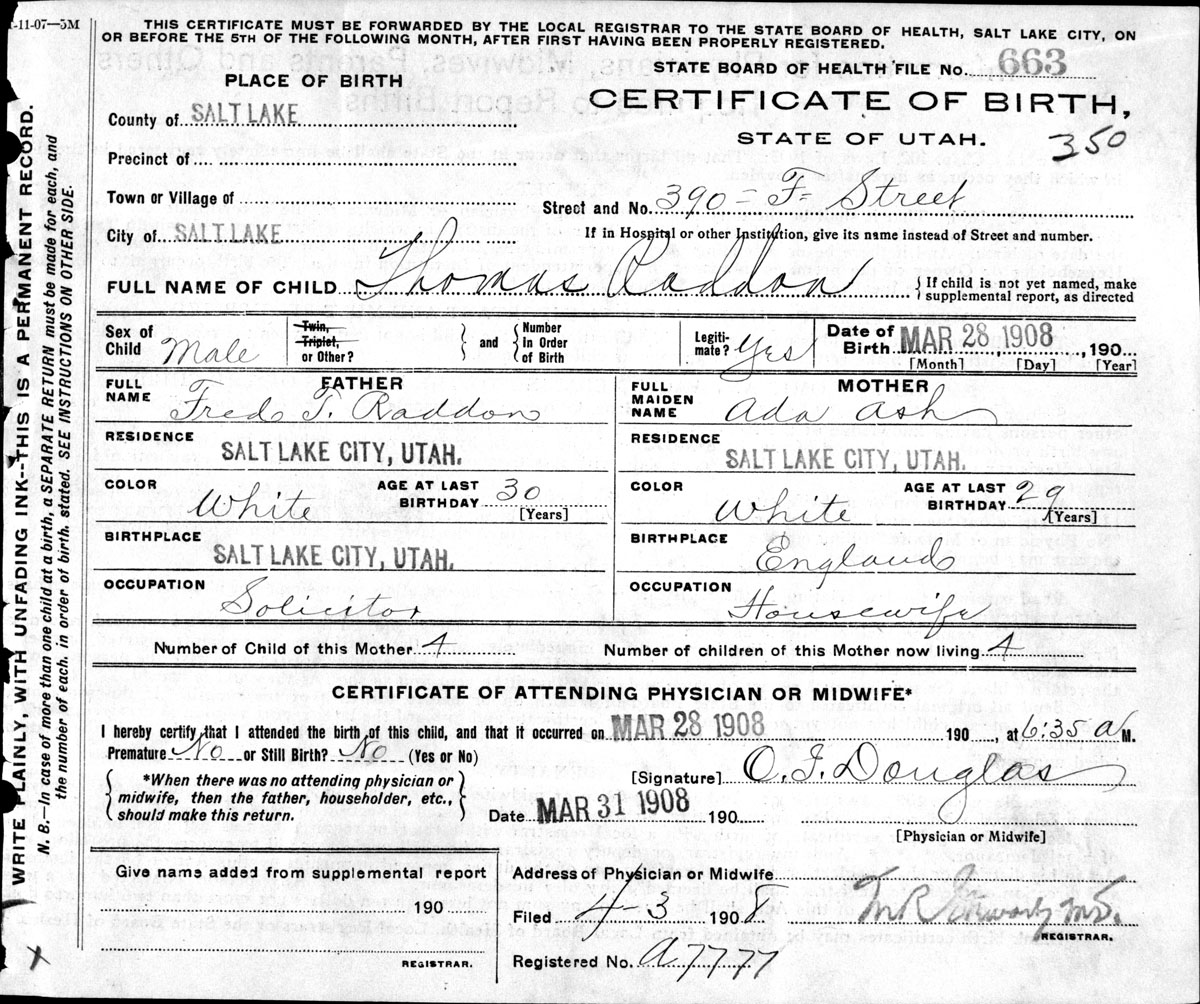 -11-07—5M
THIS CERTIFICATE MUST BE FORWARDED BY THE LOCAL REGISTRAR TO THE STATE BOARD OF HEALTH, SALT LAKE CITY, ON
OR BEFORE THE 5TH OF THE FOLLOWING MONTH, AFTER FIRST HAVING BEEN PROPERLY REGISTERED.
STATE BOARD OF HEALTH FILE No. 663
PLACE OF BIRTH
CERTIFICATE OF BIRTH,
STATE OF UTAH.
350
County of SALT LAKE
Precinct of
Town or Village of
Street and No. 390 - F- Street
City of SALT LAKE
If in Hospital or other Institution, give its name instead of Street and number.
FULL NAME OF CHILD Thomas Raddon
If child is not yet named, make
supplemental report, as directed
Sex of
Child Male
Twin,
Triplet,
or Other?
and
Number
In Order
of Birth
Legiti-
mate? Yes
Date of
Birth MAR 28 1908, 190
[Month] [Day] [Year]
FATHER
FULL
NAME Fred T. Raddon
MOTHER
FULL
MAIDEN
NAME Ada Ash
RESIDENCE
SALT LAKE CITY, UTAH.
RESIDENCE
SALT LAKE CITY, UTAH.
COLOR White
AGE AT LAST
BIRTHDAY 30
[Years]
COLOR White
AGE AT LAST
BIRTHDAY 29
[Years]
BIRTHPLACE
SALT LAKE CITY, UTAH.
BIRTHPLACE
England
OCCUPATION
Solicitor
OCCUPATION
Housewife
Number of Child of this Mother 4
Number of children of this Mother now living 4
CERTIFICATE OF ATTENDING PHYSICIAN OR MIDWIFE*
I hereby certify that I attended the birth of this child, and that it occurred on MAR 28 1908 190, at 6:35 a M.
Premature No or Still Birth? No (Yes or No)
*When there was no attending physician or
midwife, then the father, householder, etc.,
should make this return.
[Signature] O. J. Douglas
Date MAR 31 1908 190
[Physician or Midwife]
Give name added from supplemental report
190
REGISTRAR.
Address of Physician or Midwife
Filed 4-3 1908
REGISTRAR.
Registered No. A7777
WRITE PLAINLY, WITH UNFADING INK--THIS IS A PERMANENT RECORD.
N. B.—In case of more than one child at a birth, a SEPARATE RETURN must be made for each, and
the number of each, in order of birth, stated. SEE INSTRUCTIONS ON OTHER SIDE.